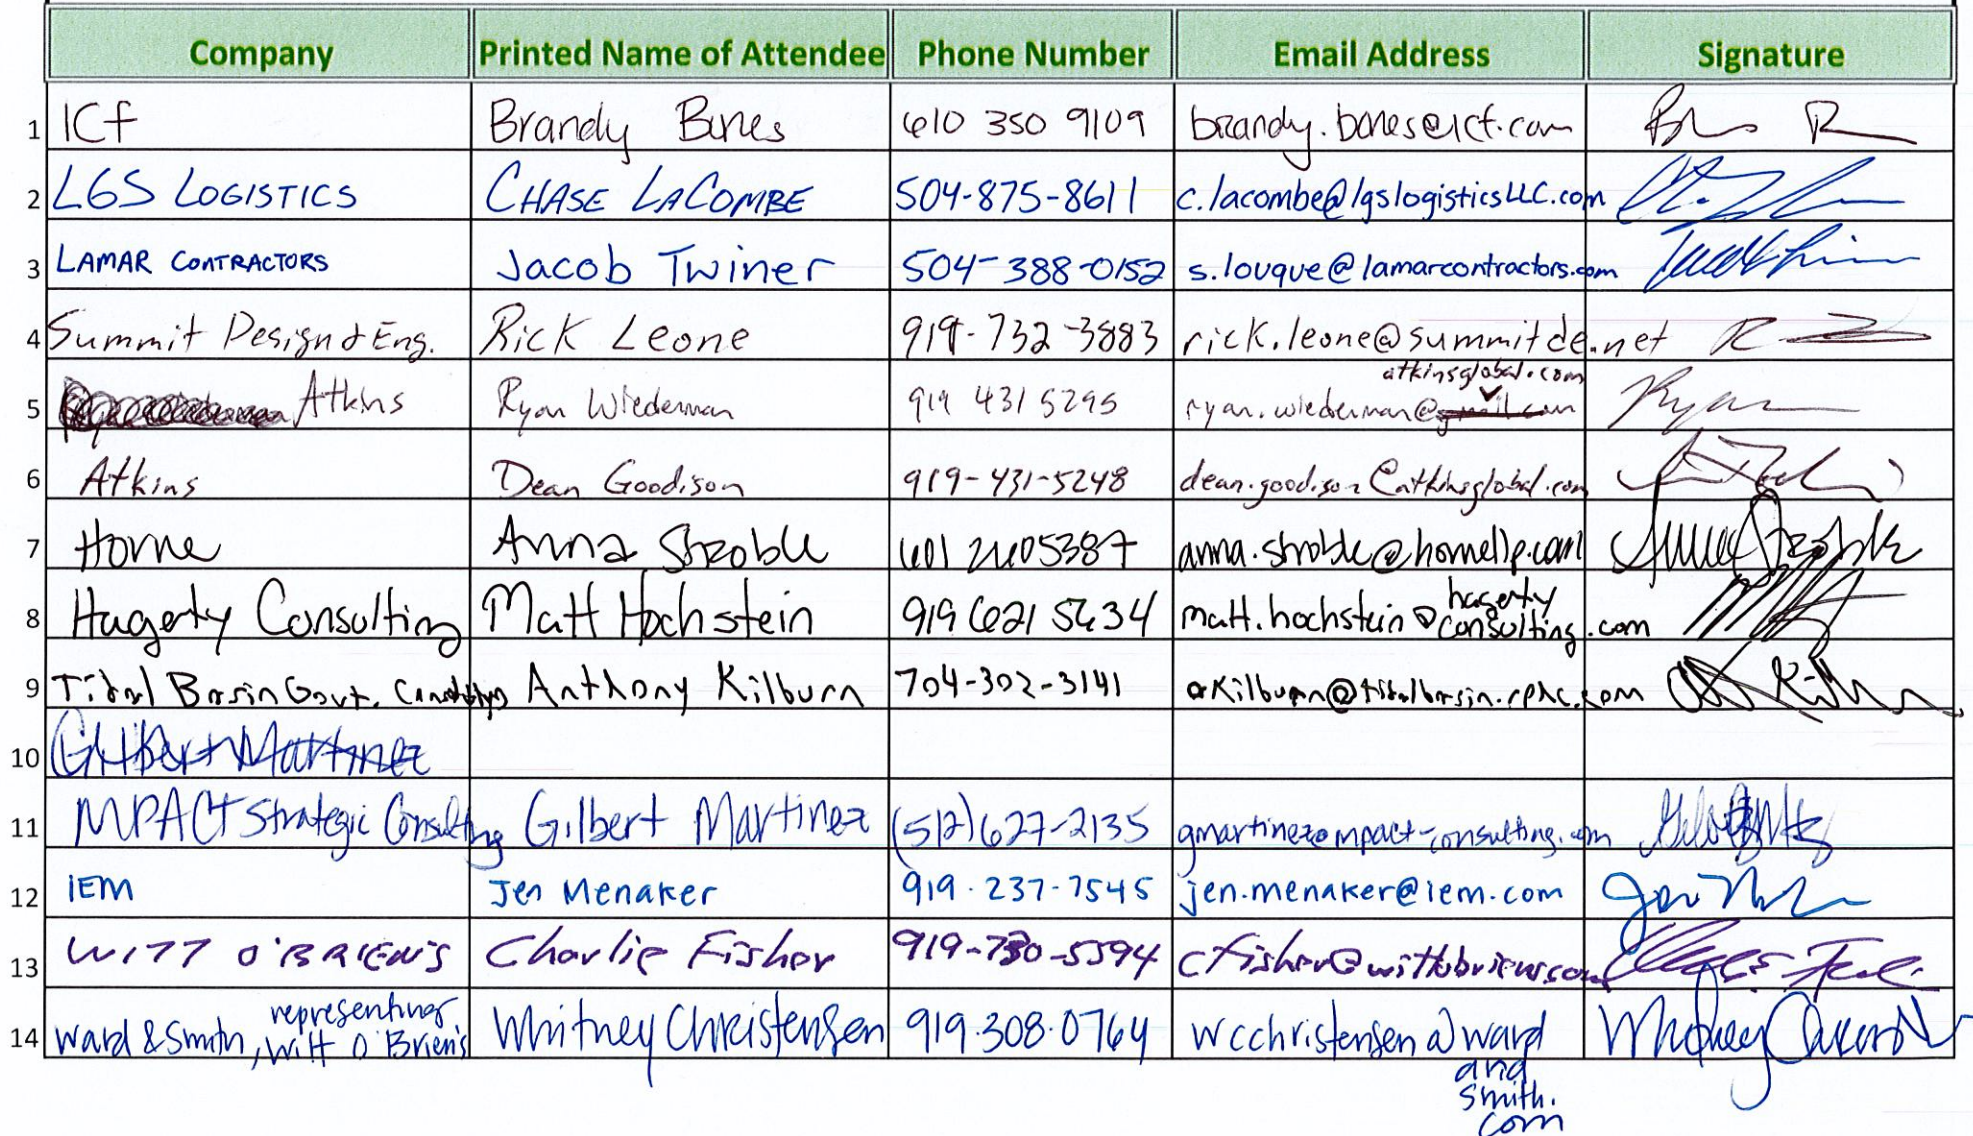 Company Printed Name of Attendee Phone Number Email Address Signature
1 ICF Brandy Bones 610 350 9109 brandy.bones@icf.com
2 LGS LOGISTICS CHASE LACOMBE 504-875-8611 c.lacombe@lgslogisticsLLC.com
3 LAMAR CONTRACTORS Jacob Twiner 504-388-0152 s.louque@lamarcontractors.com
4 Summit Design & Eng. Rick Leone 919-732-3883 rick.leone@summitde.net
5 Atkins Ryan Wiederman 919 431 5295 ryan.wiederman@atkinsglobal.com
6 Atkins Dean Goodison 919-431-5248 dean.goodison@atkinsglobal.com
7 Horne Anna Stroble 601 2605387 anna.stroble@hornellp.com
8 Hagerty Consulting Matt Hochstein 919 621 5634 matt.hochstein@hagertyconsulting.com
9 Tidal Basin Govt. Anthony Kilburn 704-302-3141
10 Gilbert Martinez
11 MPACT Strategic Consulting Gilbert Martinez (512)627-2135 gmartinez@mpact-consulting.com
12 IEM Jen Menaker 919.237-7545 jen.menaker@iem.com
13 WITT O'BRIEN'S Charlie Fisher 919-730-5594 cfisher@wittobriens.com
14 Ward & Smith, representing Witt O'Brien's Whitney Christensen 919.308.0764 wcchristensen@ward
and
smith.
com